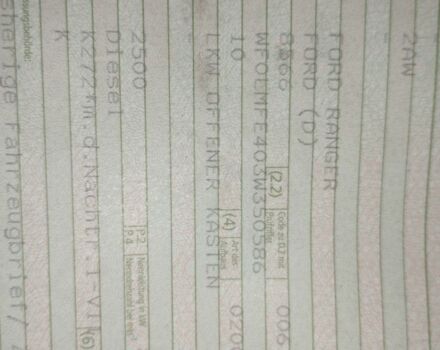 2AW
FORD RANGER
FORD (D)
8566 (2.2) Code zu D.2 mit 006
WF0LMFE403W350586
10 (4) Art des Aufbaus 020
LKW OFFENER KASTEN
2500 P.2 Nennleistung in kW
P.4 Nenndrehzahl bei min
Diesel
K272*m.d.Nachtr.1-VI (6)
K
sungsbehörde:
sherige Fahrzeugbrief/